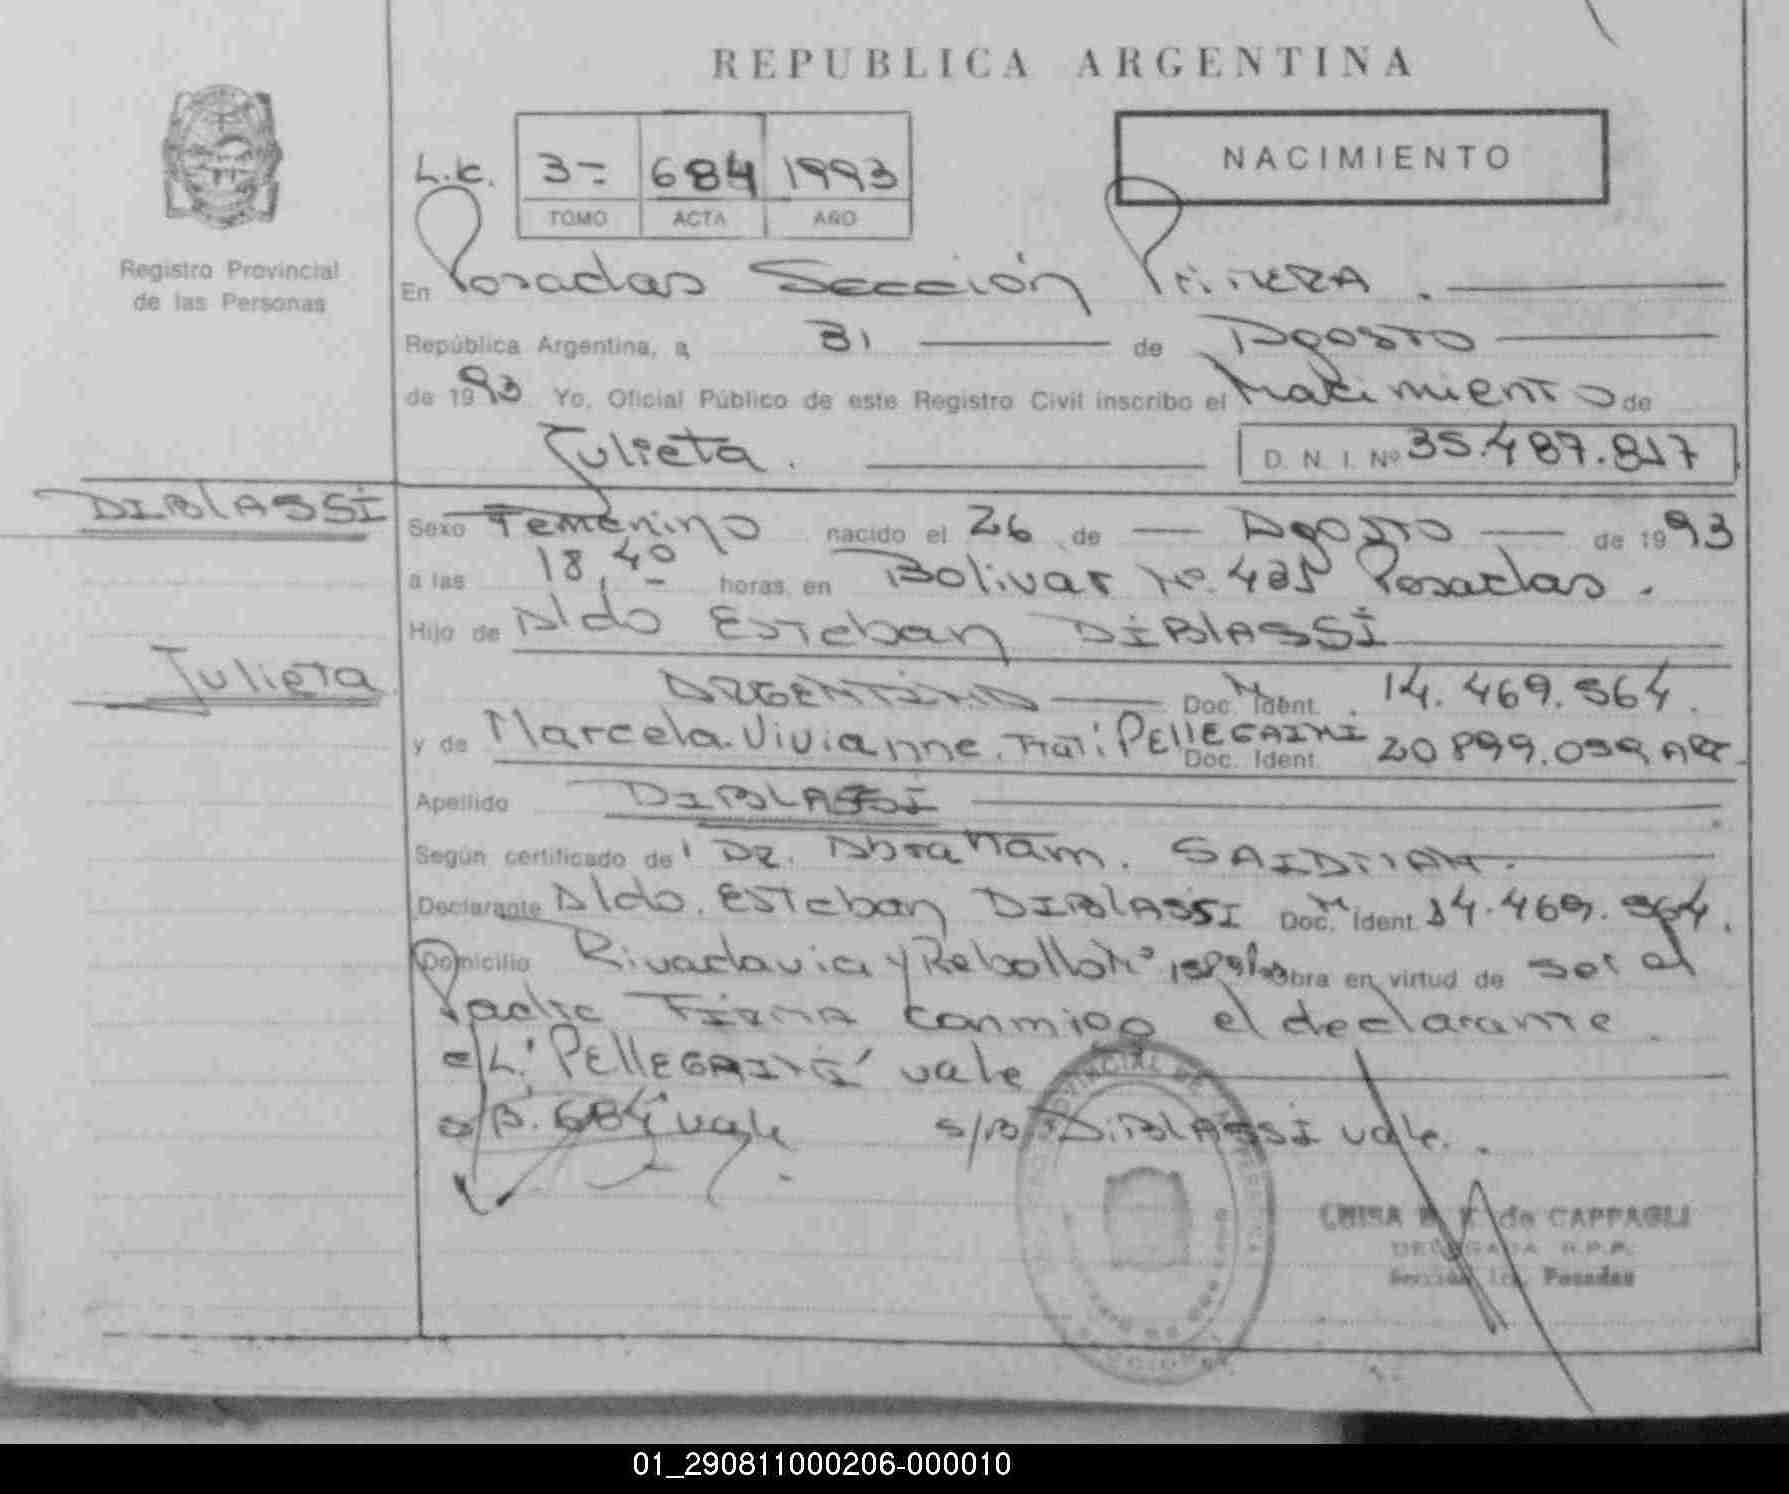 REPUBLICA ARGENTINA
NACIMIENTO
L.c. 3-- 684 1993
TOMO ACTA AÑO
Registro Provincial
de las Personas
En Posadas Sección Primera.
República Argentina, a 31 de Agosto
de 1993 Yo, Oficial Público de este Registro Civil inscribo el Nacimiento de
Julieta. D. N. I. Nº 35.487.817
DIBlASSI
Sexo Femenino nacido el 26 de Agosto de 1993
a las 18,40 horas, en Bolivar Nº. 485 Posadas.
Hijo de Aldo Esteban DIBlASSI
Julieta
ARGENTINO Doc. M Ident. 14.469.964.
y de Marcela. Vivianne. PEllEGRINI Doc. Ident. 20.899.059 ARG.
Apellido DIBLASSI
Según certificado de Dr. Abraham. SAIDMAN.
Declarante Aldo. Esteban DIBlASSI Doc. M Ident. 14.469.964.
Domicilio Rivadavia y Rebollo Nº obra en virtud de ser el
Padre Firma conmigo el declarante.
e/L: "PEllEGRINI" vale
s/B. "684" vale s/B DIBlASSI vale.
de CAPPAGLI
DELEGADA R.P.P.
Sección 1ra. Posadas
01_290811000206-000010